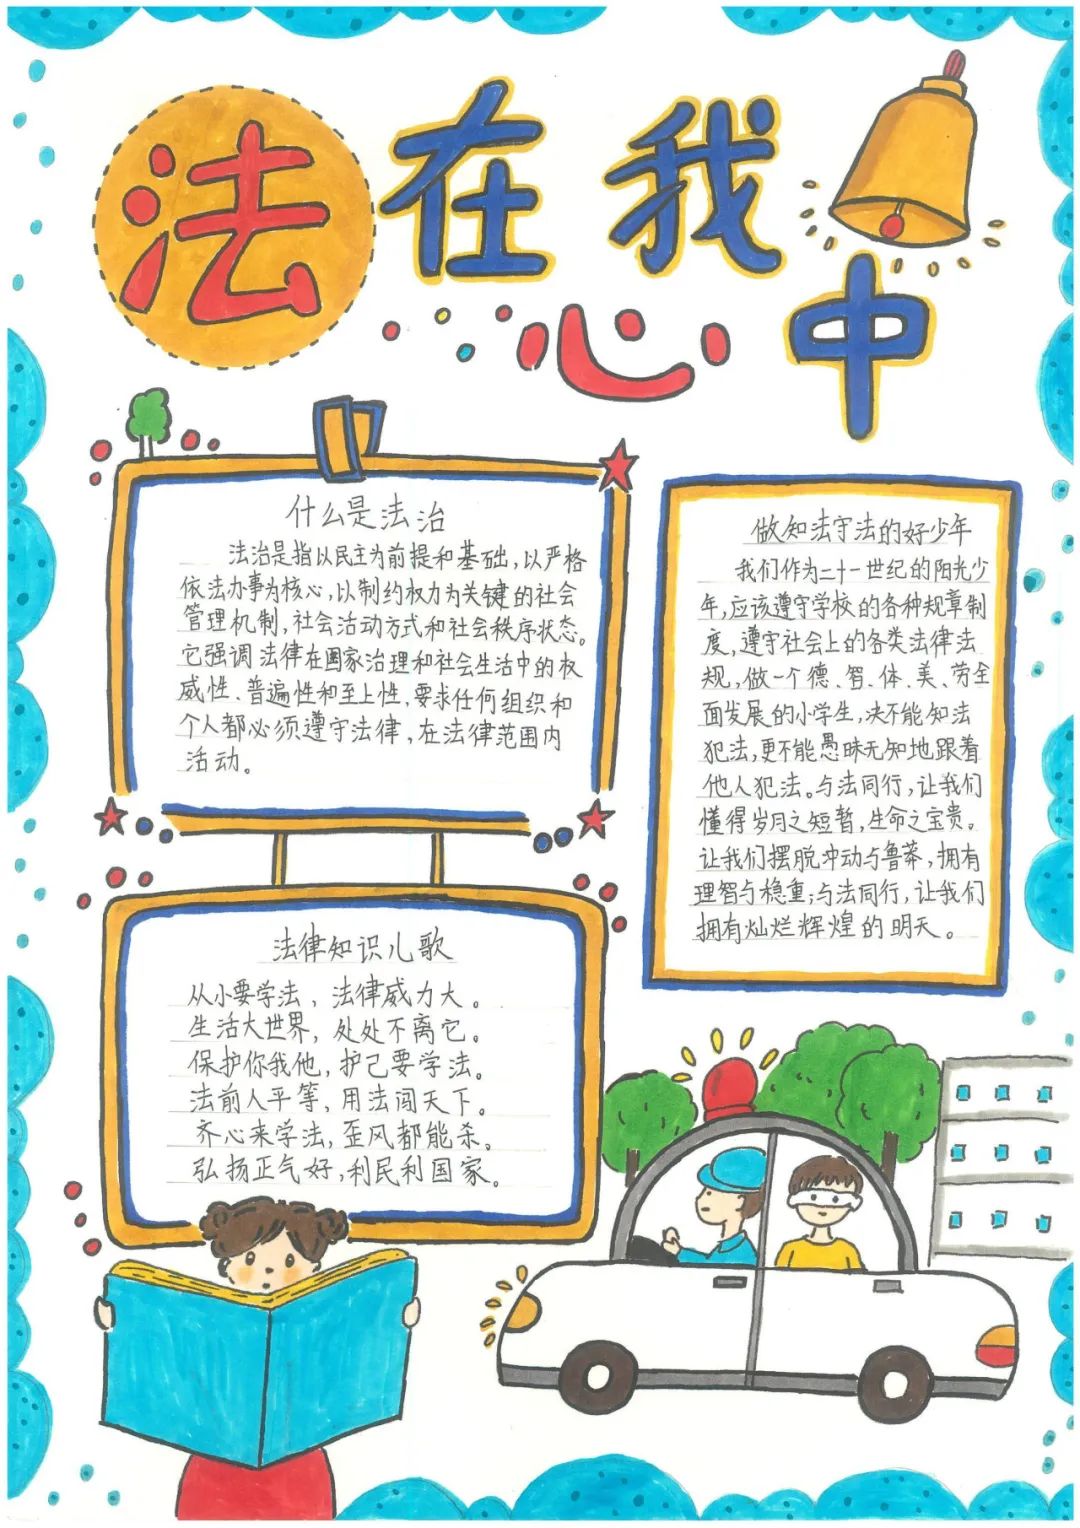 法在我
心中
什么是法治
法治是指以民主为前提和基础,以严格
依法办事为核心,以制约权力为关键的社会
管理机制,社会活动方式和社会秩序状态。
它强调法律在国家治理和社会生活中的权
威性、普遍性和至上性,要求任何组织和
个人都必须遵守法律,在法律范围内
活动。
法律知识儿歌
从小要学法,法律威力大。
生活大世界,处处不离它。
保护你我他,护己要学法。
法前人平等,用法闯天下。
齐心来学法,歪风都能杀。
弘扬正气好,利民利国家。
做知法守法的好少年
我们作为二十一世纪的阳光少
年,应该遵守学校的各种规章制
度,遵守社会上的各类法律法
规,做一个德、智、体、美、劳全
面发展的小学生,决不能知法
犯法,更不能愚昧无知地跟着
他人犯法。与法同行,让我们
懂得岁月之短暂,生命之宝贵。
让我们摆脱冲动与鲁莽,拥有
理智与稳重;与法同行,让我们
拥有灿烂辉煌的明天。